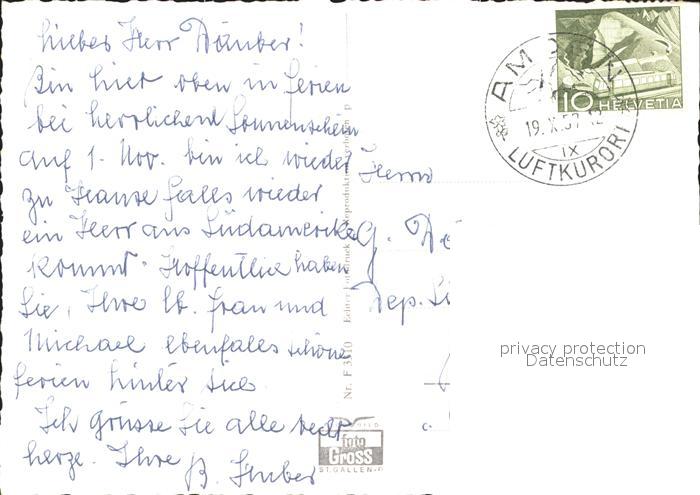 Liebes Herr Däuber!
Bin hier oben in Ferien
bei herrlichem Sonnenschein
auf 1. Nov. bin ich wieder
zu Hause falls wieder
ein Herr aus Südamerika
kommt. Hoffentlich haben
Sie, Ihre lb. Frau und
Michael ebenfalls schöne
Ferien hinter sich.
Ich grüsse Sie alle recht
herzl. Ihre B.
Herrn
G. Dä
Dep. Li
Nr. F 3310 Echter Fotodruck
foto
Gross
ST. GALLEN
AMDEN
19. X. 57-12
IX
LUFTKURORT
10 HELVETIA
privacy protection
Datenschutz